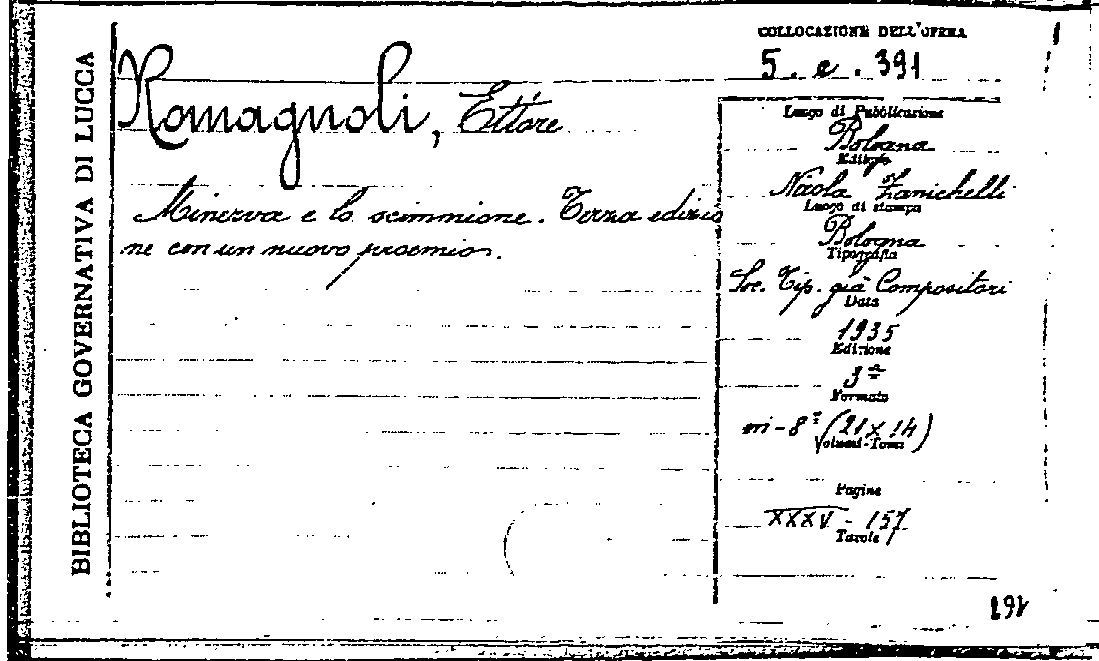 BIBLIOTECA GOVERNATIVA DI LUCCA
Romagnoli, Ettore
Minerva e lo scimmione. Terza edizio
ne con un nuovo proemio.
COLLOCAZIONE DELL'OPERA
5. e. 391
Luogo di Pubblicazione
Bologna
Editore
Nicola Zanichelli
Luogo di stampa
Bologna
Tipografia
Soc. Tip. già Compositori
Data
1935
Edizione
3ª
Formato
in-8° (21 x 14)
Volumi-Tomi
Pagine
XXXV - 157
Tavole